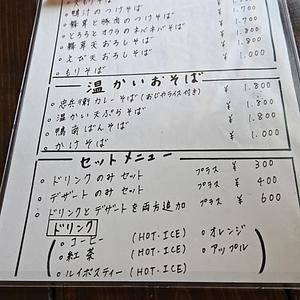 鴨汁のつけそば ¥ 1.700
舞茸と豚肉のつけそば
とろろとオクラのネバネバそば ¥ 1.700
舞茸天おろしそば ¥ 1.800
えび天おろしそば ¥ 1.800
もりそば ¥ 1.000
温かいおそば
忠兵衛カレーそば(おじやライス付き) ¥ 1.800
温かい天ぷらそば ¥ 1.800
鴨南ばんそば ¥ 1.800
かけそば ¥ 1.000
セットメニュー
ドリンクのみセット プラス ¥ 300
デザートのみセット プラス ¥ 400
ドリンクとデザートを両方追加 プラス ¥ 600
ドリンク
コーヒー (HOT・ICE) オレンジ
紅茶 (HOT・ICE) アップル
ルイボスティー (HOT・ICE)